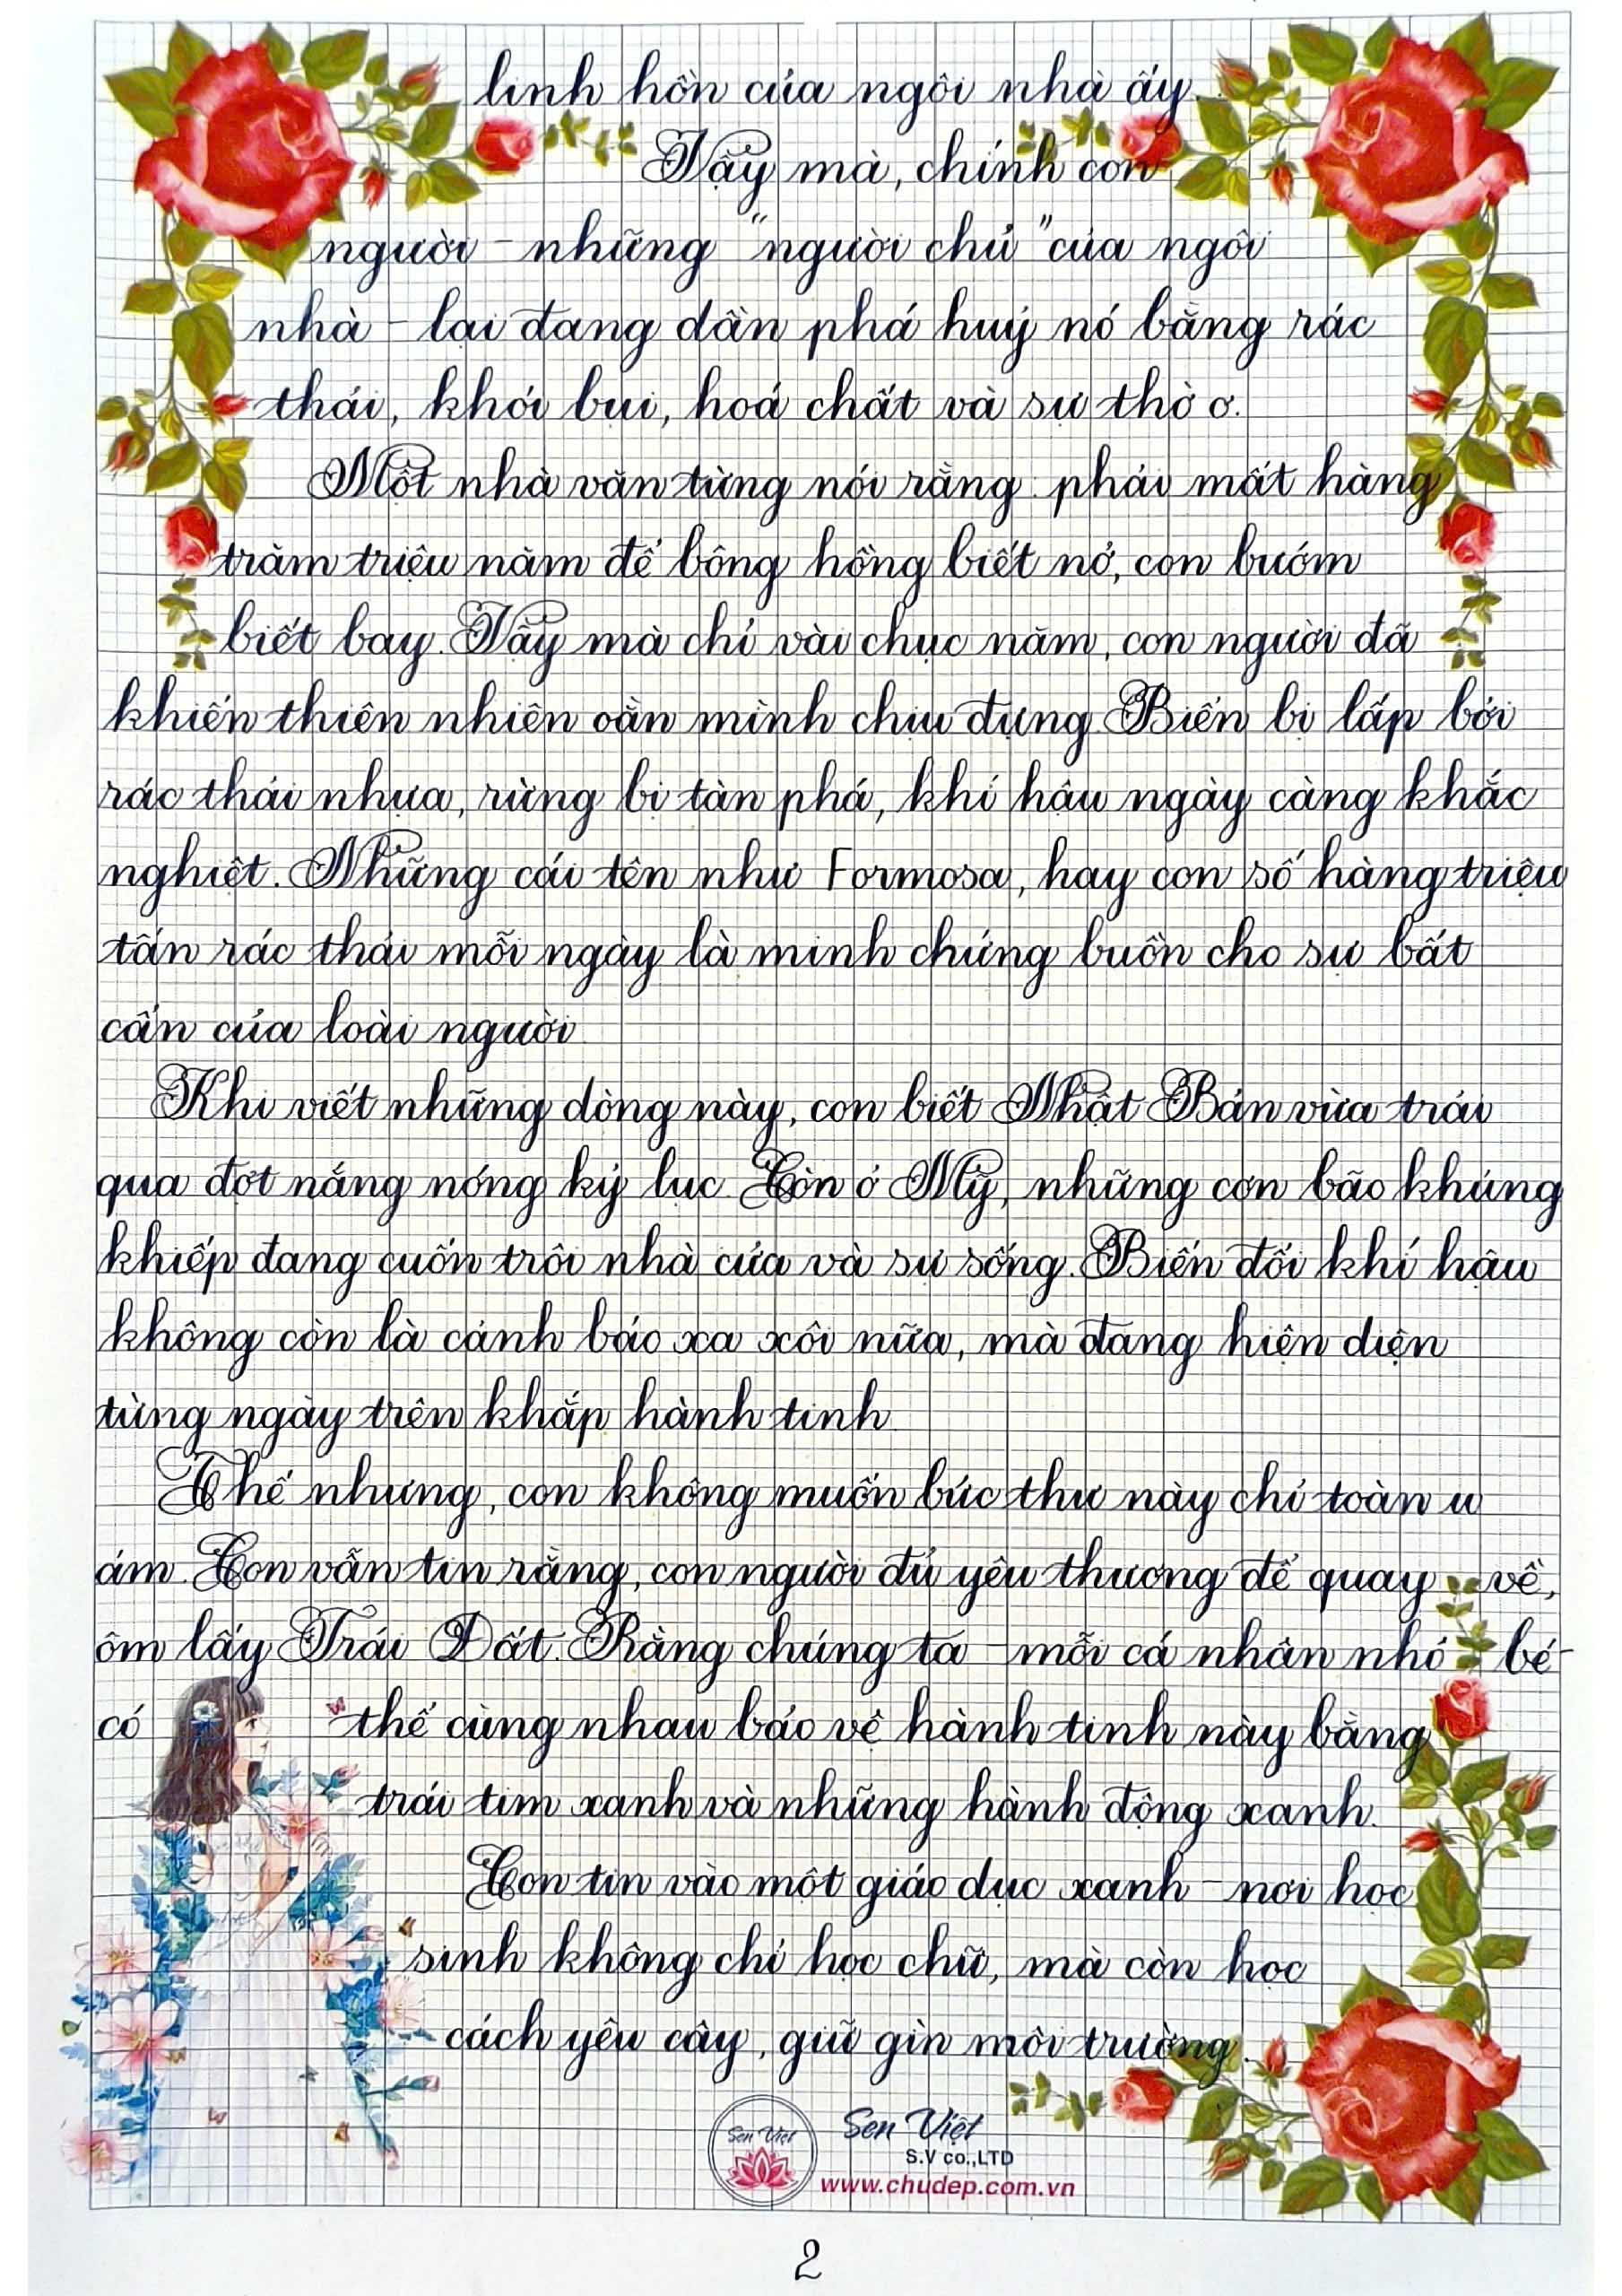 linh hồn của ngôi nhà ấy.
Vậy mà, chính con
người – những "người chủ" của ngôi
nhà – lại đang dần phá huỷ nó bằng rác
thải, khói bụi, hoá chất và sự thờ ơ.
Một nhà văn từng nói rằng: phải mất hàng
trăm triệu năm để bông hồng biết nở, con bướm
biết bay. Vậy mà chỉ vài chục năm, con người đã
khiến thiên nhiên oằn mình chịu đựng. Biển bị lấp bởi
rác thải nhựa, rừng bị tàn phá, khí hậu ngày càng khắc
nghiệt. Những cái tên như Formosa, hay con số hàng triệu
tấn rác thải mỗi ngày là minh chứng buồn cho sự bất
cẩn của loài người.
Khi viết những dòng này, con biết Nhật Bản vừa trải
qua đợt nắng nóng kỷ lục. Còn ở Mỹ, những cơn bão khủng
khiếp đang cuốn trôi nhà cửa và sự sống. Biến đổi khí hậu
không còn là cảnh báo xa xôi nữa, mà đang hiện diện
từng ngày trên khắp hành tinh.
Thế nhưng, con không muốn bức thư này chỉ toàn u
ám. Con vẫn tin rằng, con người đủ yêu thương để quay về,
ôm lấy Trái Đất. Rằng chúng ta – mỗi cá nhân nhỏ bé –
có thể cùng nhau bảo vệ hành tinh này bằng
trái tim xanh và những hành động xanh.
Con tin vào một giáo dục xanh – nơi học
sinh không chỉ học chữ, mà còn học
cách yêu cây, giữ gìn môi trường.
Sen Việt
Sen Việt
S.V co.,LTD
www.chudep.com.vn
2